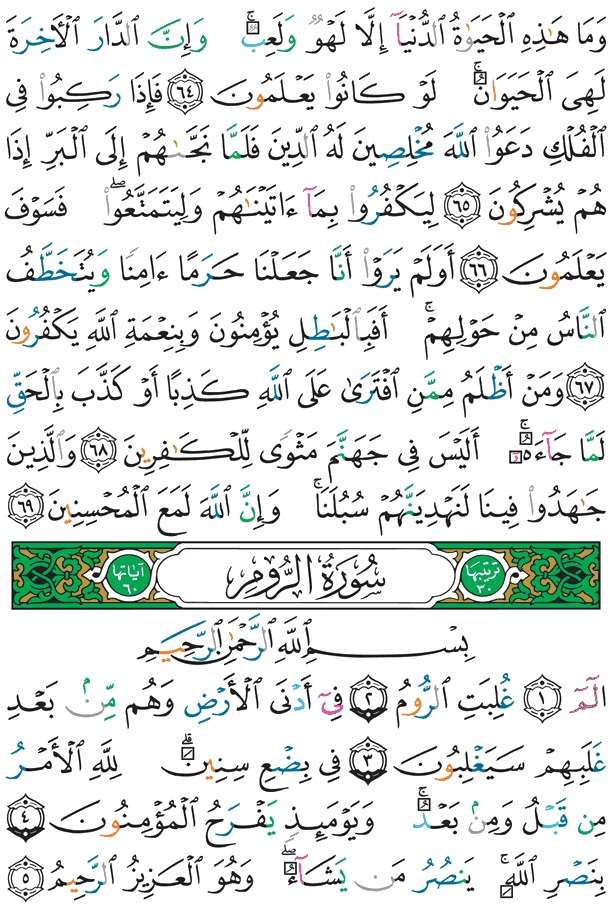 وَمَا هَٰذِهِ ٱلْحَيَوٰةُ ٱلدُّنْيَآ إِلَّا لَهْوٌ وَلَعِبٌ ۚ وَإِنَّ ٱلدَّارَ ٱلْأٓخِرَةَ
لَهِىَ ٱلْحَيَوَانُ ۚ لَوْ كَانُوا۟ يَعْلَمُونَ ٦٤ فَإِذَا رَكِبُوا۟ فِى
ٱلْفُلْكِ دَعَوُا۟ ٱللَّهَ مُخْلِصِينَ لَهُ ٱلدِّينَ فَلَمَّا نَجَّىٰهُمْ إِلَى ٱلْبَرِّ إِذَا
هُمْ يُشْرِكُونَ ٦٥ لِيَكْفُرُوا۟ بِمَآ ءَاتَيْنَٰهُمْ وَلِيَتَمَتَّعُوا۟ ۖ فَسَوْفَ
يَعْلَمُونَ ٦٦ أَوَلَمْ يَرَوْا۟ أَنَّا جَعَلْنَا حَرَمًا ءَامِنًا وَيُتَخَطَّفُ
ٱلنَّاسُ مِنْ حَوْلِهِمْ ۚ أَفَبِٱلْبَٰطِلِ يُؤْمِنُونَ وَبِنِعْمَةِ ٱللَّهِ يَكْفُرُونَ
٦٧ وَمَنْ أَظْلَمُ مِمَّنِ ٱفْتَرَىٰ عَلَى ٱللَّهِ كَذِبًا أَوْ كَذَّبَ بِٱلْحَقِّ
لَمَّا جَآءَهُۥٓ ۚ أَلَيْسَ فِى جَهَنَّمَ مَثْوًى لِّلْكَٰفِرِينَ ٦٨ وَٱلَّذِينَ
جَٰهَدُوا۟ فِينَا لَنَهْدِيَنَّهُمْ سُبُلَنَا ۚ وَإِنَّ ٱللَّهَ لَمَعَ ٱلْمُحْسِنِينَ ٦٩
ترتيبها ٣٠ سُورَةُ الرُّومِ آياتها ٦٠
بِسْمِ ٱللَّهِ ٱلرَّحْمَٰنِ ٱلرَّحِيمِ
الٓمٓ ١ غُلِبَتِ ٱلرُّومُ ٢ فِىٓ أَدْنَى ٱلْأَرْضِ وَهُم مِّنۢ بَعْدِ
غَلَبِهِمْ سَيَغْلِبُونَ ٣ فِى بِضْعِ سِنِينَ ۗ لِلَّهِ ٱلْأَمْرُ
مِن قَبْلُ وَمِنۢ بَعْدُ ۚ وَيَوْمَئِذٍ يَفْرَحُ ٱلْمُؤْمِنُونَ ٤
بِنَصْرِ ٱللَّهِ ۚ يَنصُرُ مَن يَشَآءُ ۖ وَهُوَ ٱلْعَزِيزُ ٱلرَّحِيمُ ٥